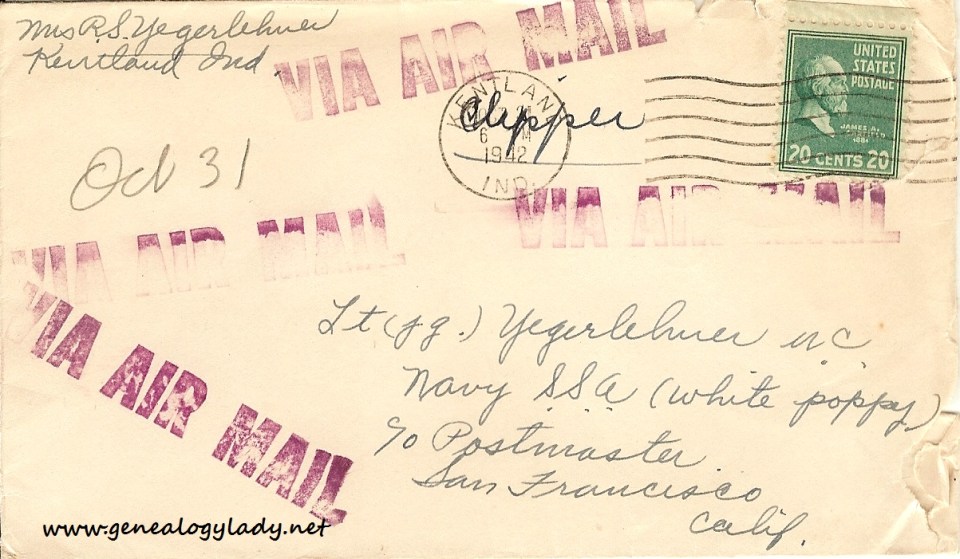 Mrs R.S. Yegerlehner
Kentland Ind.
VIA AIR MAIL
KENTLAND
6 PM
1942
IND.
Clipper
UNITED
STATES
POSTAGE
JAMES A.
GARFIELD
1881
20 CENTS 20
Oct 31
VIA AIR MAIL
VIA AIR MAIL
VIA AIR MAIL
Lt (jg.) Yegerlehner MC
Navy SSA (White poppy)
c/o Postmaster
San Francisco
Calif.
www.genealogylady.net